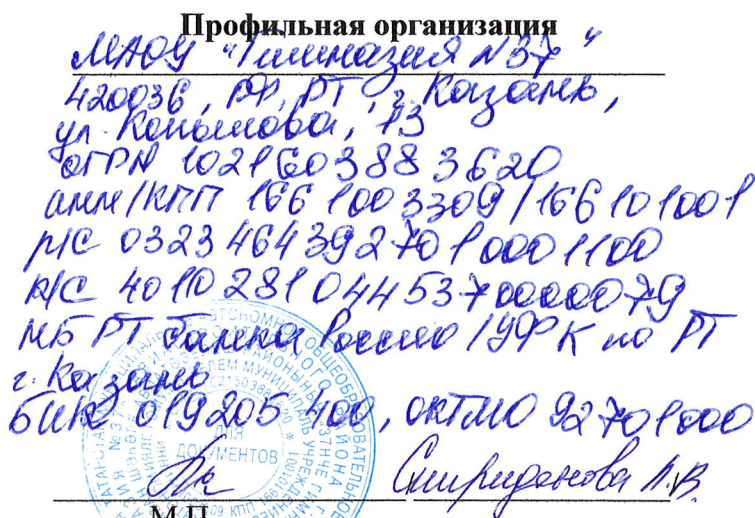 Профильная организация
МАОУ "Гимназия №37"
420036, РФ, РТ, г. Казань,
ул. Копылова, 13
ОГРН 1021603883620
ИНН/КПП 1661003309/166101001
р/с 03234643927010001100
к/с 40102810445370000079
НБ РТ Банка России/УФК по РТ
г. Казань
БИК 019205400, ОКТМО 92701000
ДЛЯ
ДОКУМЕНТОВ
Спиридонова Л.В.
М.П.